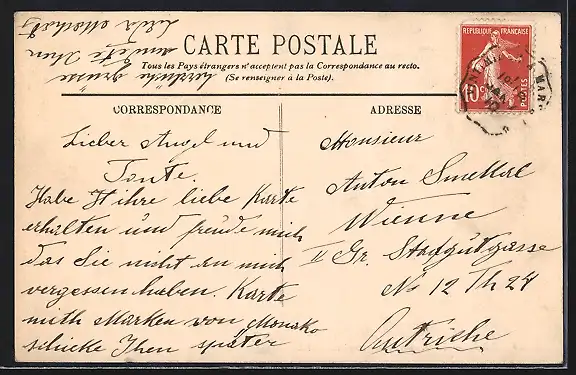 CARTE POSTALE
Tous les Pays étrangers n'acceptent pas la Correspondance au recto.
(Se renseigner à la Poste).
REPUBLIQUE FRANÇAISE
10c
POSTES
CORRESPONDANCE
Lieber Ongel und
Tante.
Habe Ihre liebe Karte
erhalten und freude mich
das Sie nicht an mich
vergessen haben. Karte
mith Marken von Monako
schicke Ihen später
herzliche grüsse
ADRESSE
Monsieur
Anton Smekal
Wienne
II Gr. Stadgutgasse
No 12 Th 24
Autriche